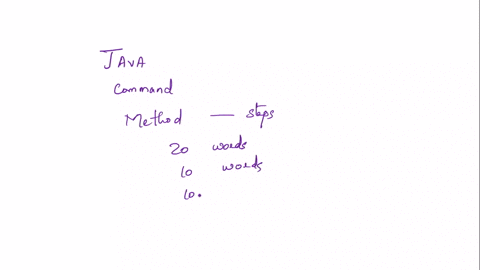 JAVA
Command
Method — steps
20 words
10 words
10.